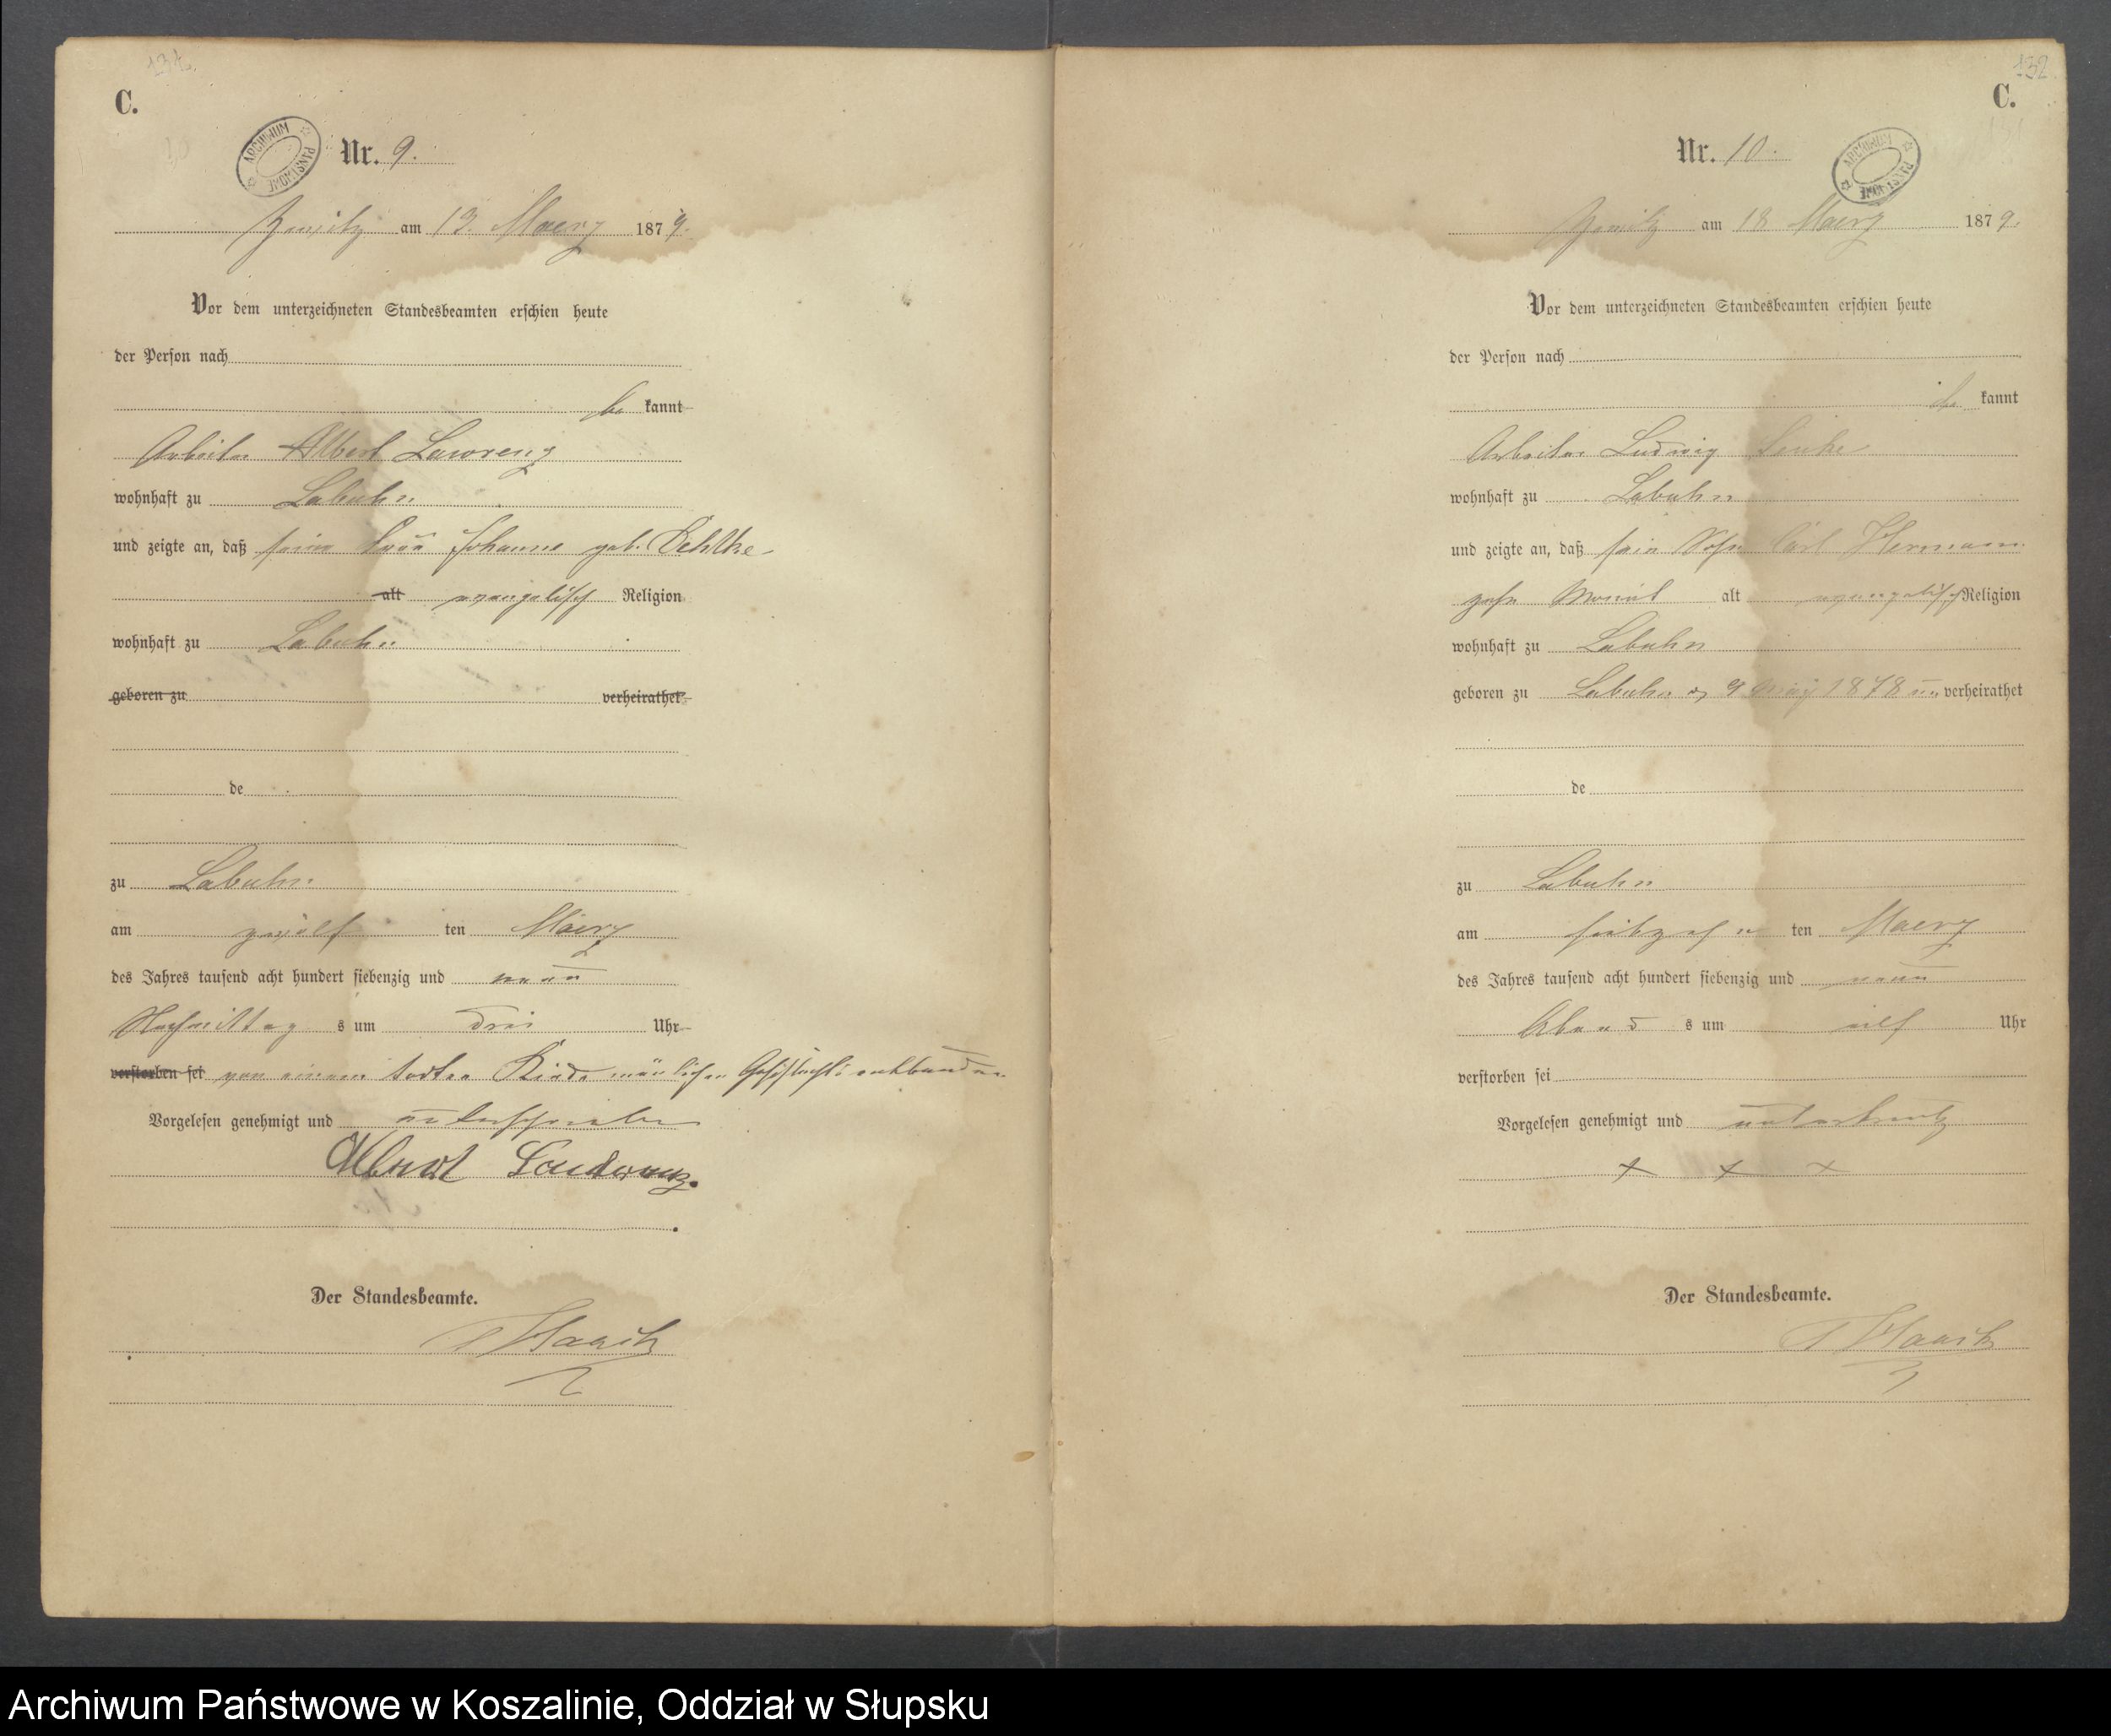 C.
Nr. 9.
ARCHIWUM PAŃSTWOWE
am 13. Maerz 1879.
Vor dem unterzeichneten Standesbeamten erschien heute
der Person nach
be kannt
Arbeiter Albert Lawrenz
wohnhaft zu Labuhn
und zeigte an, daß seine Frau Johanne geb.
alt evangelisch Religion
wohnhaft zu Labuhn
geboren zu verheirathet
de
zu Labuhn
am zwölf ten Maerz
des Jahres tausend acht hundert siebenzig und neun
Nachmittag s um drei Uhr
verstorben sei von einem todten Kinde mänlichen Geschlechts entbunden
Vorgelesen genehmigt und unterschrieben
Albert
Der Standesbeamte.
132
C.
Nr. 10.
ARCHIWUM PAŃSTWOWE
am 18 Maerz 1879.
Vor dem unterzeichneten Standesbeamten erschien heute
der Person nach
be kannt
Arbeiter Ludwig
wohnhaft zu Labuhn
und zeigte an, daß sein Sohn Carl Hermann
zehn Monat alt evangelisch Religion
wohnhaft zu Labuhn
geboren zu Labuhn d 9 May 1878 un verheirathet
de
zu Labuhn
am siebzehn ten Maerz
des Jahres tausend acht hundert siebenzig und neun
Abend s um elf Uhr
verstorben sei
Vorgelesen genehmigt und unterkreutz
+ + +
Der Standesbeamte.
Archiwum Państwowe w Koszalinie, Oddział w Słupsku